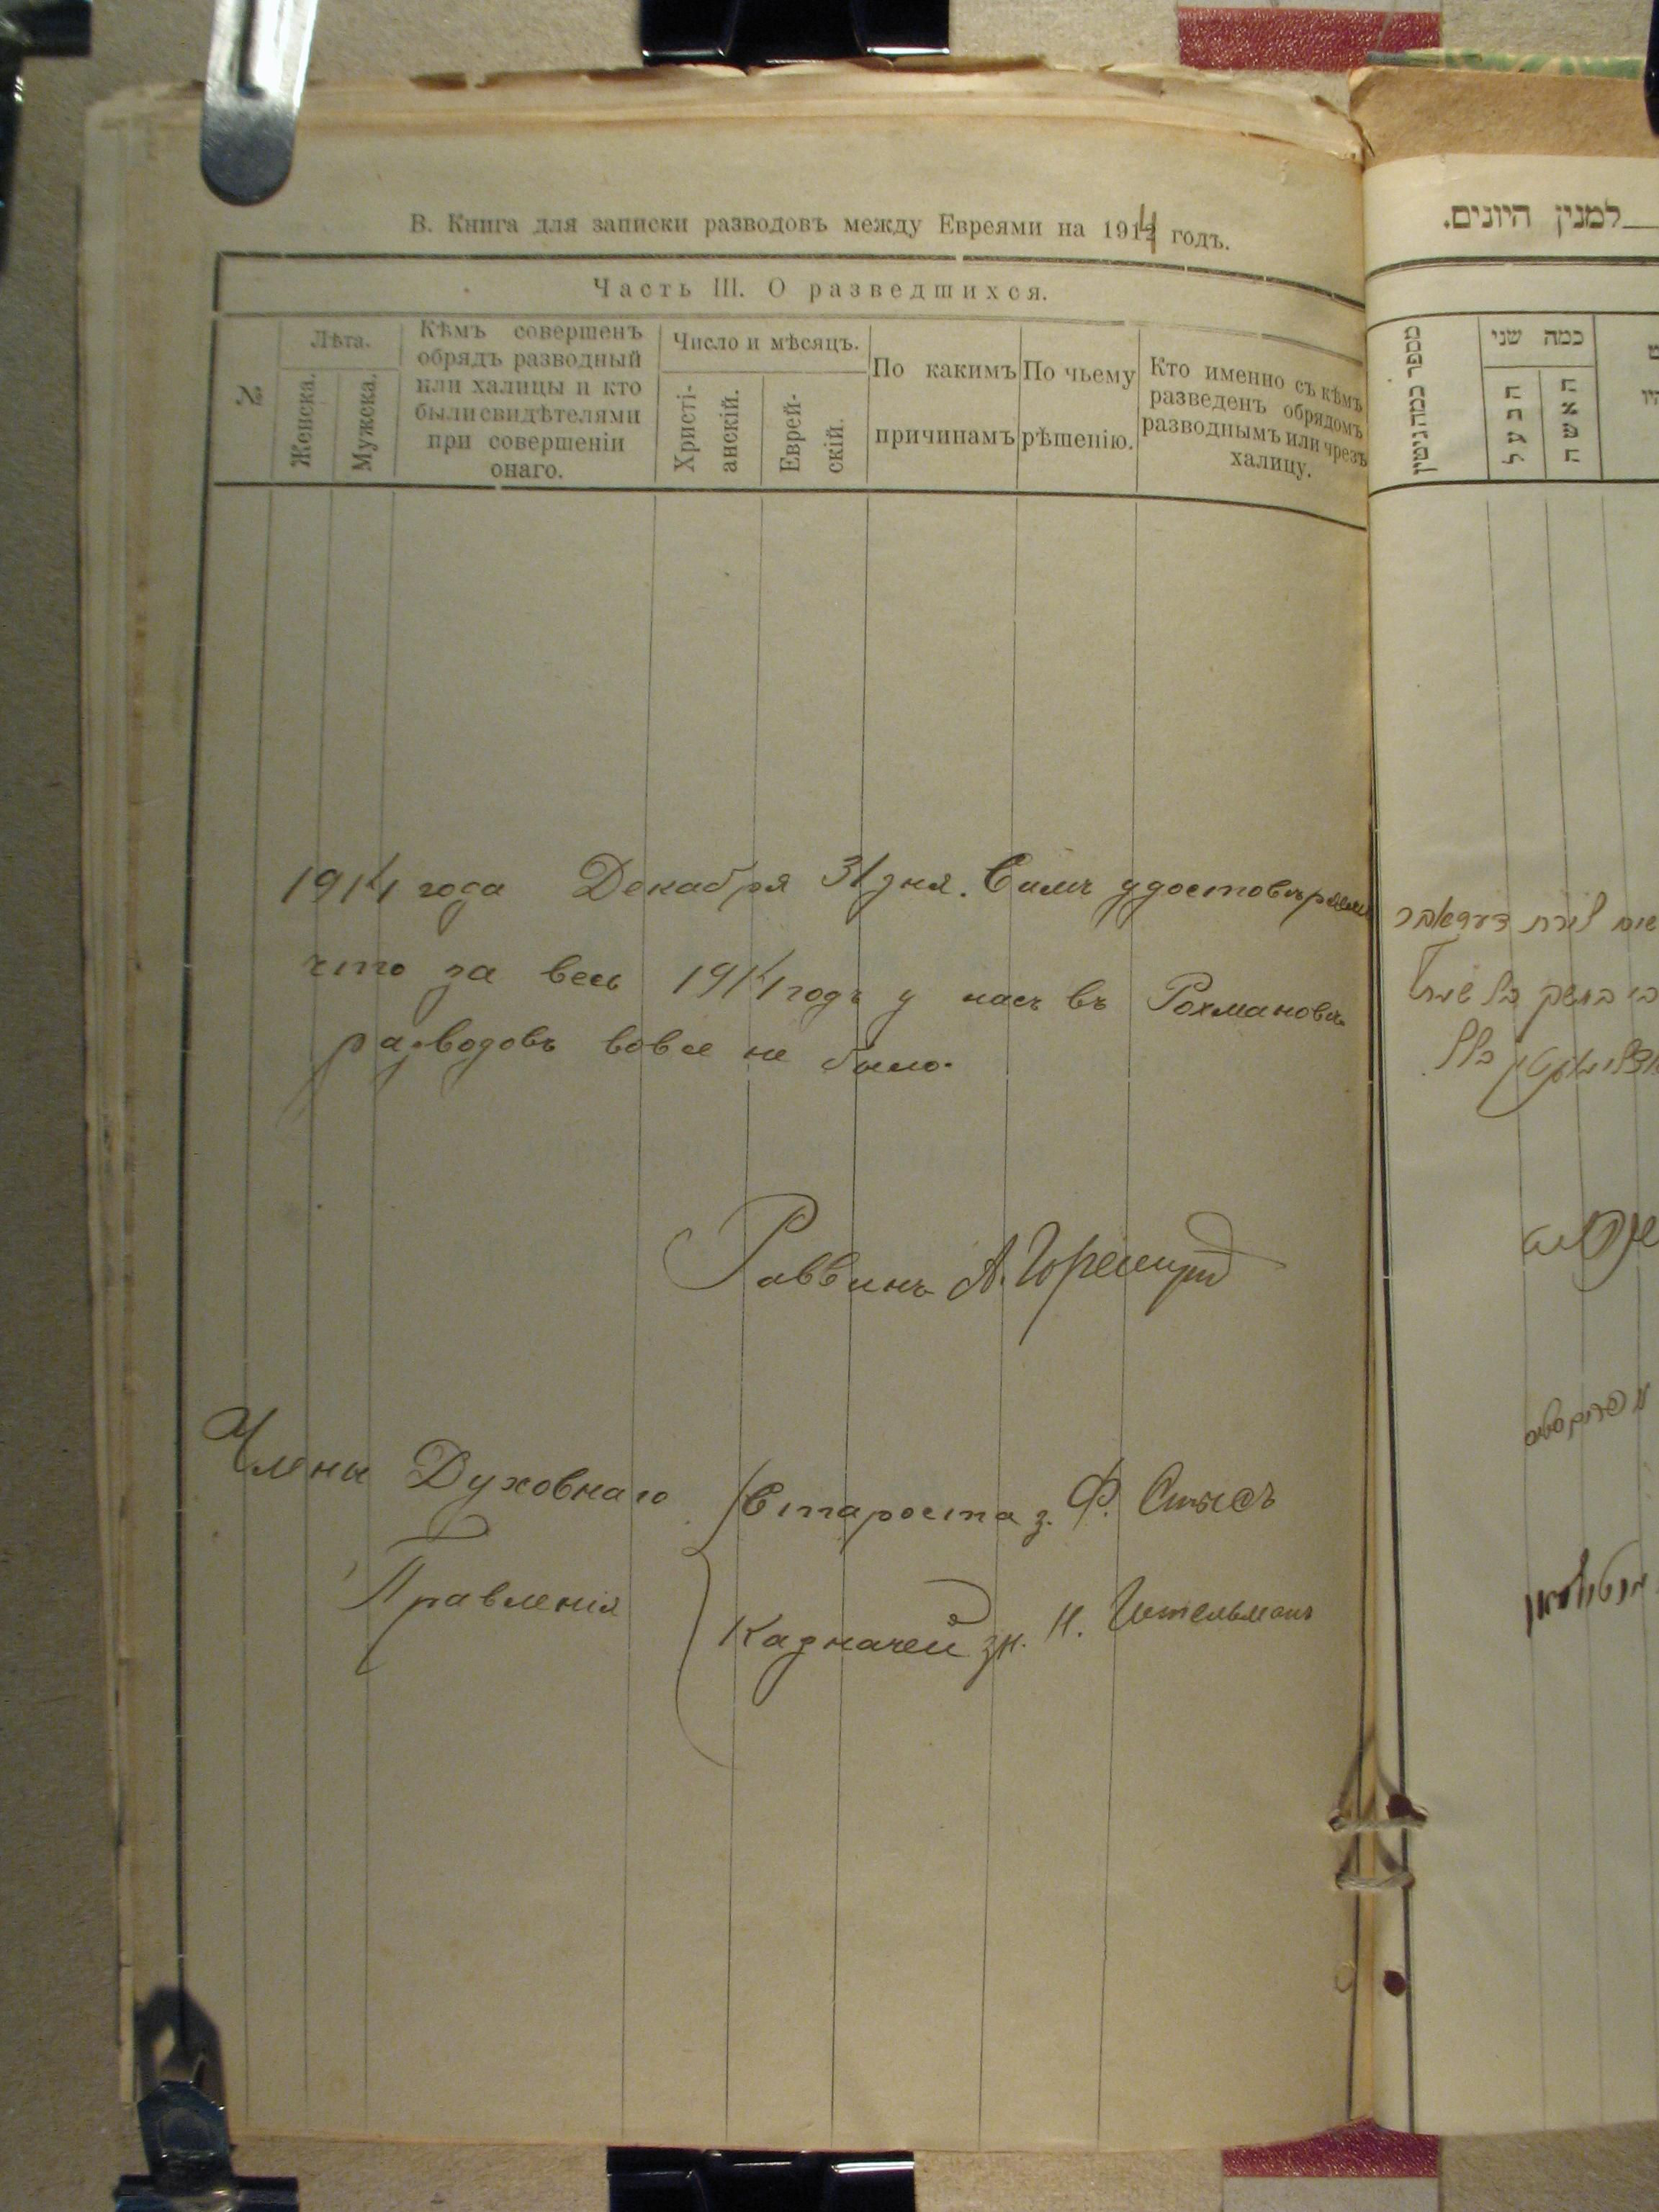 В. Книга для записки разводовъ между Евреями на 1914 годъ.
Часть III. О разведшихся.
№
Лѣта.
Женска.
Мужска.
Кѣмъ совершенъ
обрядъ разводный
или халицы и кто
были свидѣтелями
при совершеніи
онаго.
Число и мѣсяцъ.
Христі-
анскій.
Еврей-
скій.
По какимъ
причинамъ
По чьему
рѣшенію.
Кто именно съ кѣмъ
разведенъ обрядомъ
разводнымъ или чрезъ
халицу.
1914 года Декабря 31 дня. Симъ удостовѣряемъ
что за весь 1914 годъ у насъ въ Рохмановѣ
разводовъ вовсе не было.
Раввинъ А.
Члены Духовнаго
Правленія
Староста з. Ф.
Казначей зн. И.
למנין היונים.
מספר כמה גיטין
כמה שני
הבעל
האשה